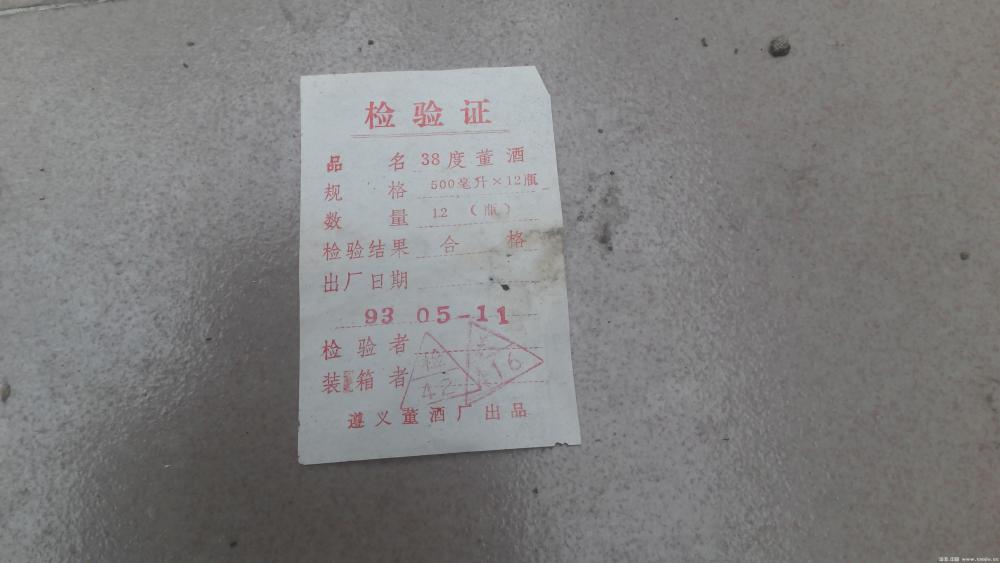 检验证
品 名 38度董酒
规 格 500毫升×12瓶
数 量 12（瓶）
检验结果 合 格
出厂日期
93 05-11
检验者
装箱者
检
42
16
遵义董酒厂出品